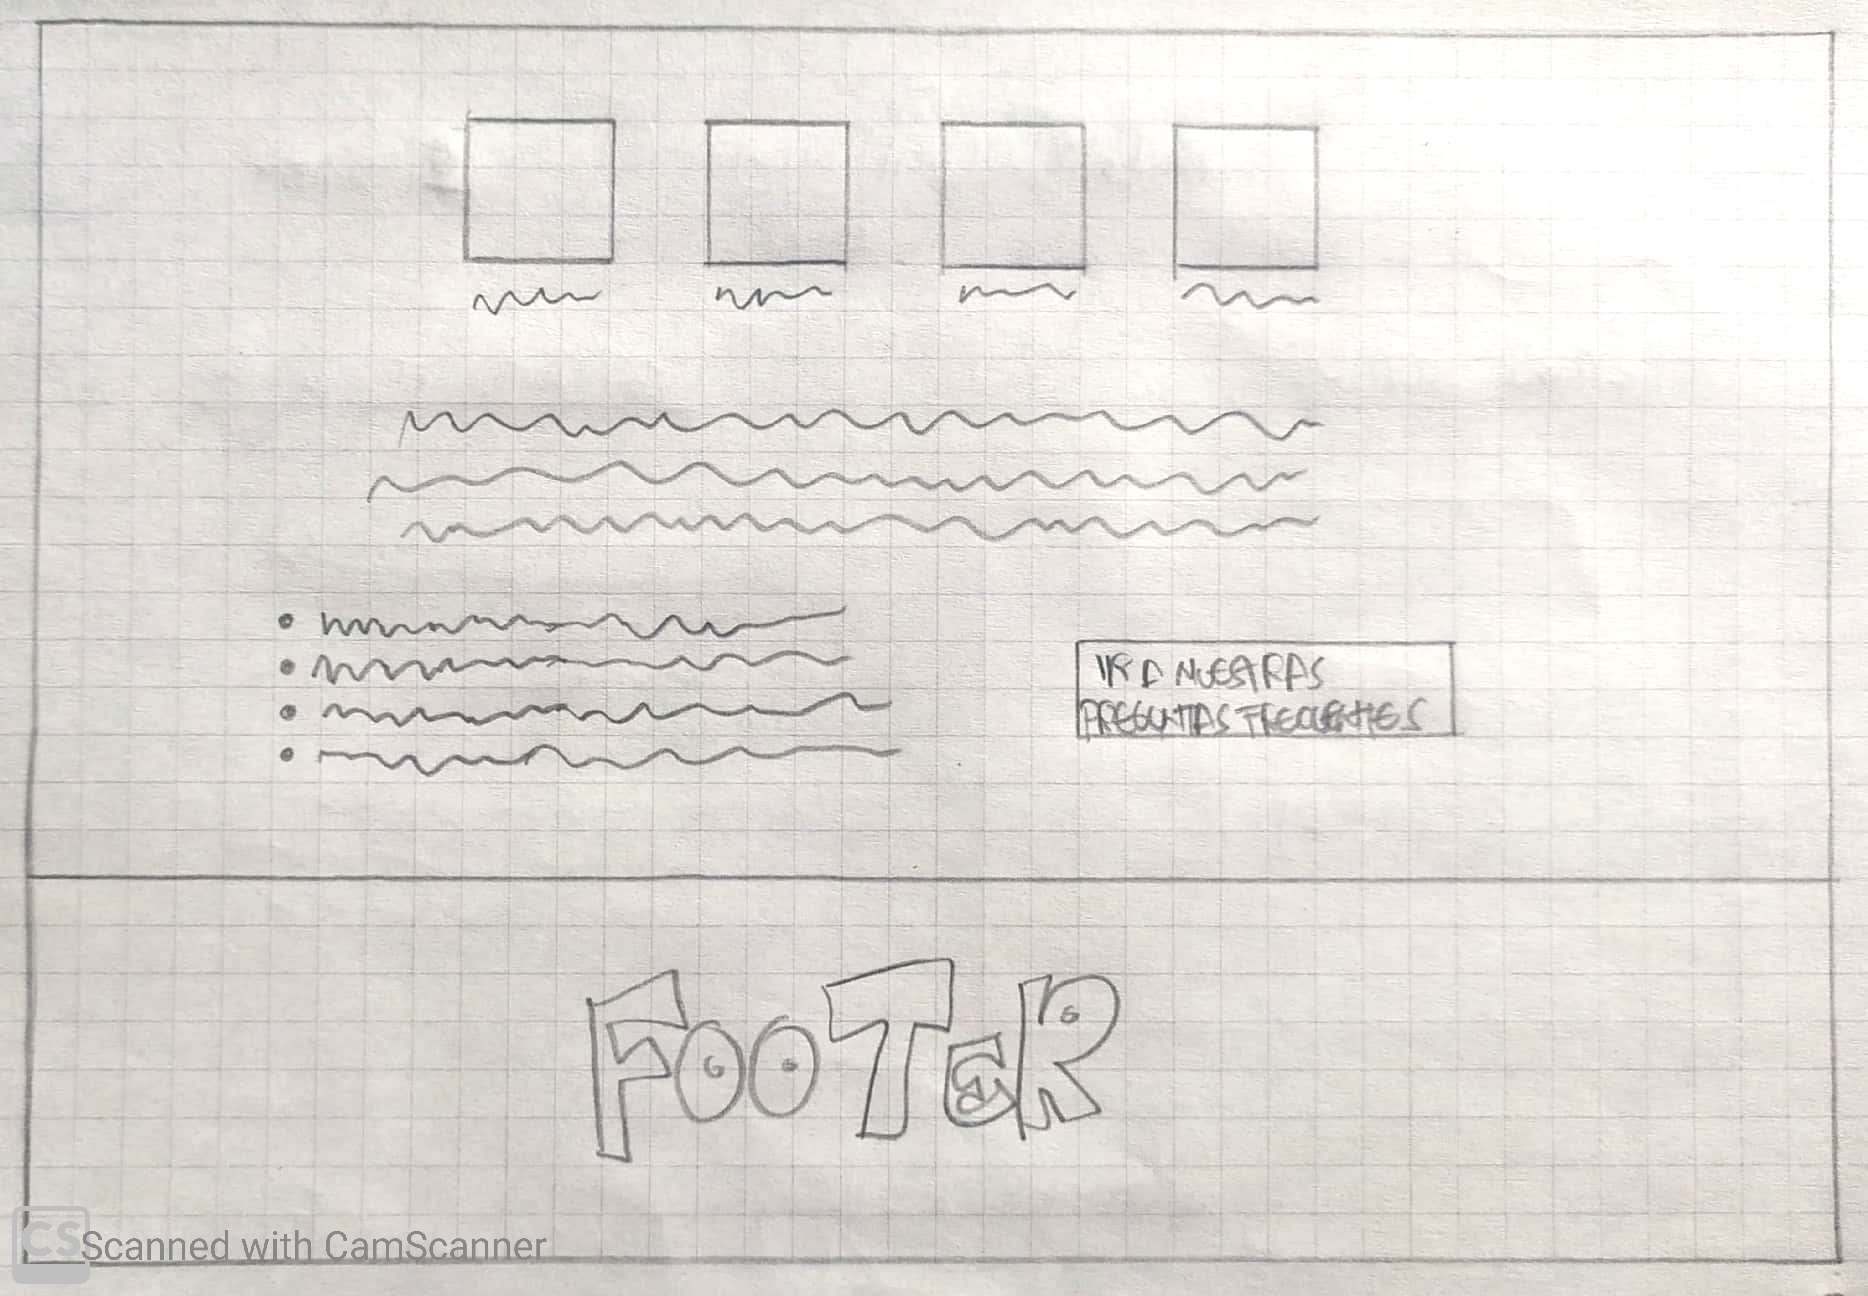 IR A NUESTRAS
PREGUNTAS FRECUENTES
FOOTER
CS Scanned with CamScanner